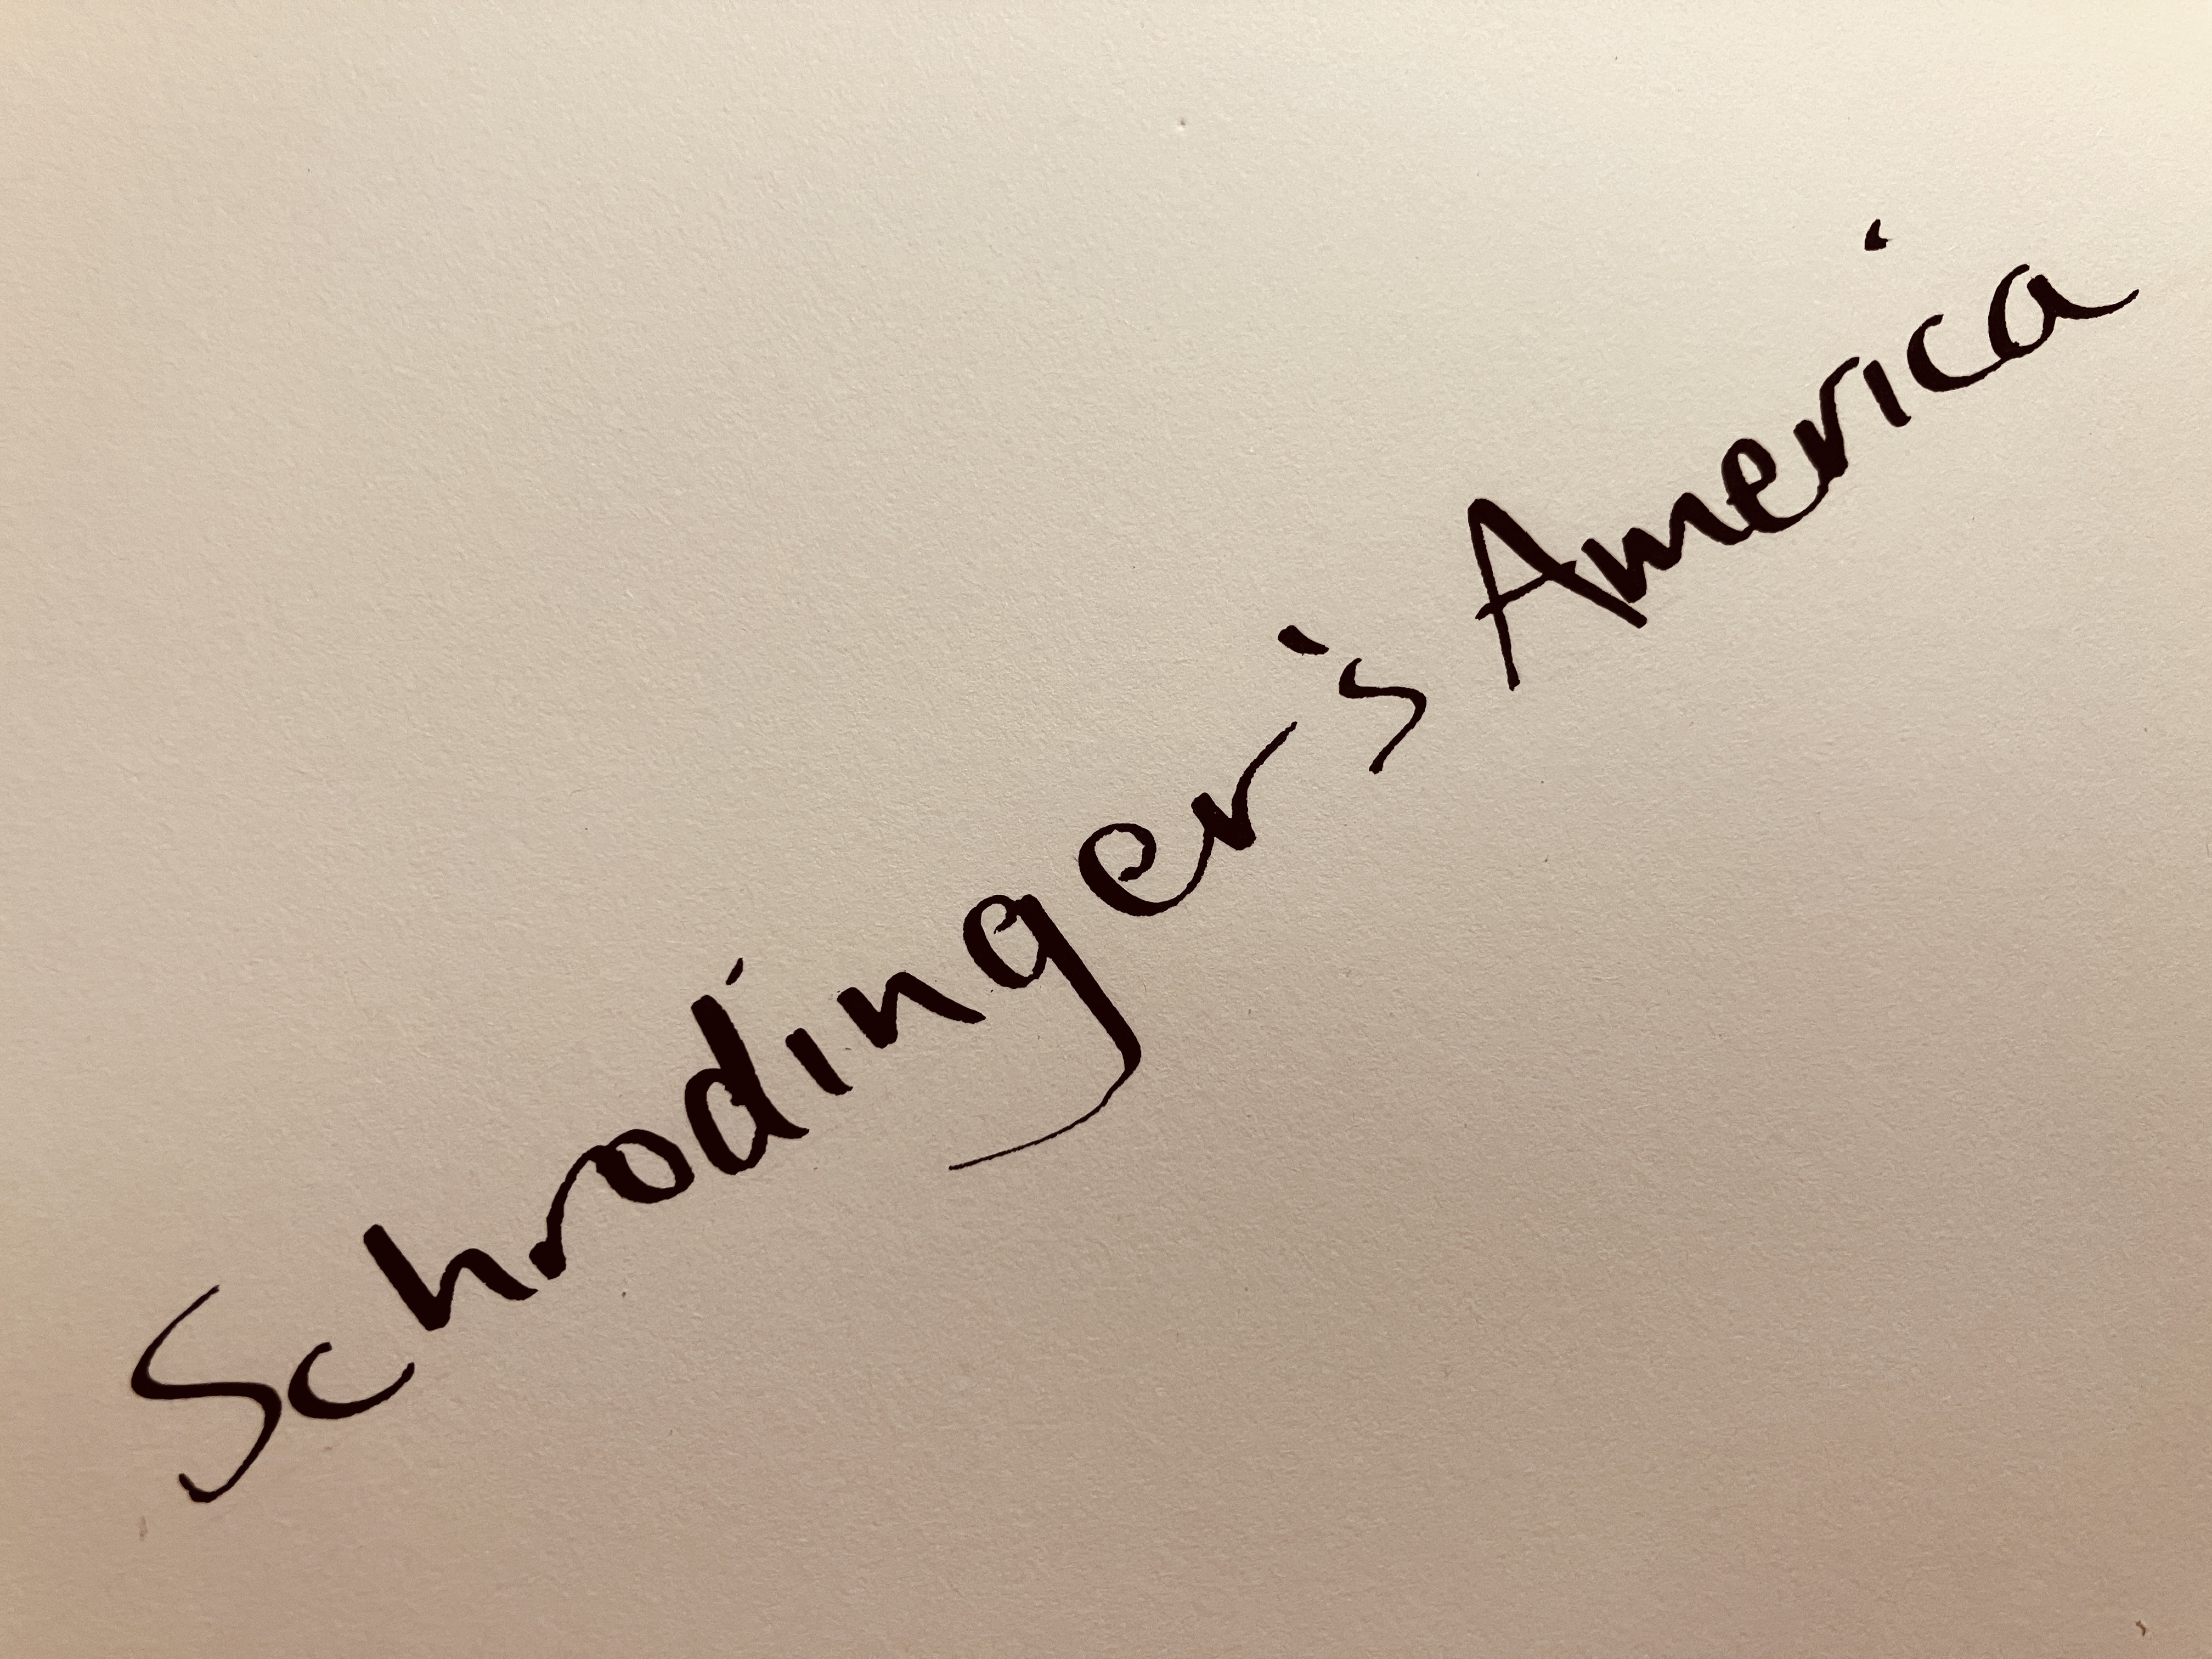 Schrodinger's America